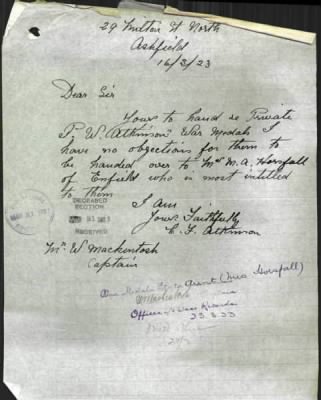 29 Milton St North
Ashfield
16/3/23
Dear Sir
Yours to hand re Private
P. W. Atkinson War Medals I
have no objections for them to
be handed over to Mrs M. A. Horsfall
of Enfield who is most intitled
to them
DECEASED
SECTION
RECEIVED
I Am
Yours Faithfully
E. F. Atkinson
Mr. W Mackentosh
Captain
Aunt (Mrs Horsfall)
Officer i/c Base Records
23.3.23